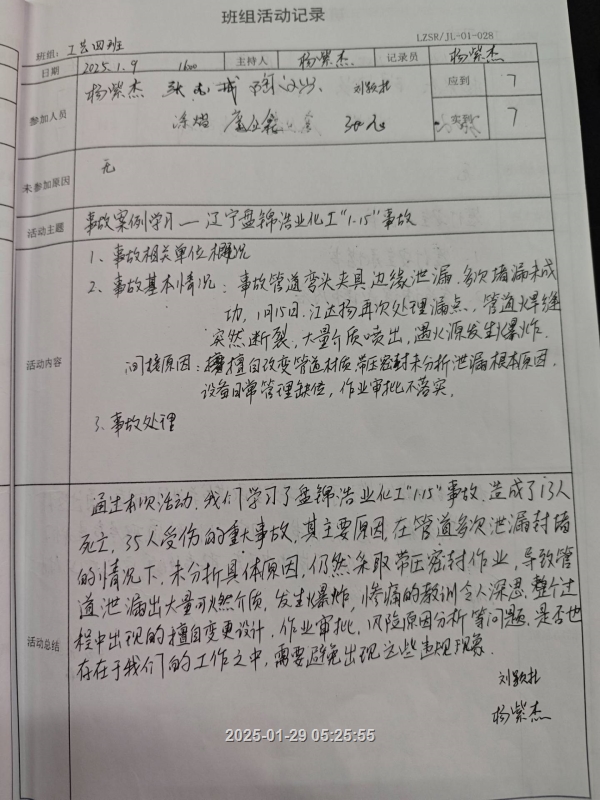 班组活动记录
班组: 工艺四班
LZSR/JL-01-028
日期 2025.1.9 1600 主持人 杨紫杰 记录员 杨紫杰
参加人员 杨紫杰 应到 7
实到 7
未参加原因 无
活动主题 事故案例学习—辽宁盘锦浩业化工"1·15"事故
活动内容
1、事故相关单位概况
2、事故基本情况：事故管道弯头夹具边缘泄漏，多次堵漏未成
功，1月15日，江达扬再次处理漏点，管道焊缝
突然断裂，大量介质喷出，遇火源发生爆炸.
间接原因：擅自改变管道材质，带压密封未分析泄漏根本原因，
设备日常管理缺位，作业审批不落实。
3、事故处理
活动总结
通过本次活动，我们学习了盘锦浩业化工"1·15"事故，造成了13人
死亡，35人受伤的重大事故，其主要原因，在管道多次泄漏封堵
的情况下，未分析具体原因，仍然采取带压密封作业，导致管
道泄漏出大量可燃介质，发生爆炸，惨痛的教训令人深思，整个过
程中出现的擅自变更设计，作业审批，风险原因分析等问题，是否也
存在于我们的工作之中，需要避免出现这些违规现象.
杨紫杰
2025-01-29 05:25:55